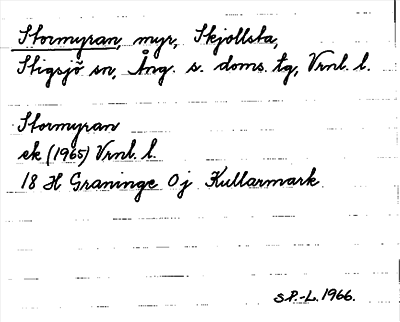 Stormyran, myr, Skjollsta,
Stigsjö sn, Ång. s. doms. tg, Vrnl. l.
Stormyran
ek (1965) Vrnl. l.
18 H Graninge 0 j Kullarmark
S.P.-L. 1966.